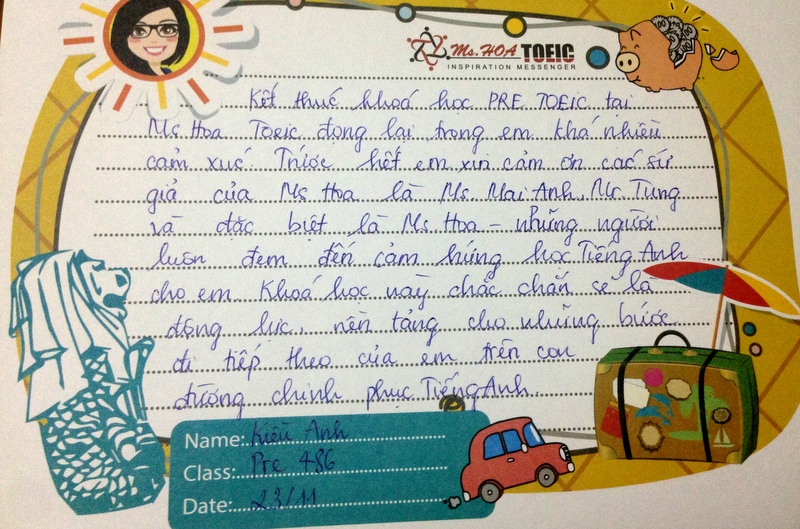 Ms. HOA TOEIC
INSPIRATION MESSENGER
Kết thúc khoá học PRE TOEIC tại
Ms Hoa Toeic đọng lại trong em khá nhiều
cảm xúc. Trước hết em xin cảm ơn các sứ
giả của Ms Hoa là Ms. Mai Anh, Mr. Tùng
và đặc biệt là Ms Hoa - những người
luôn đem đến cảm hứng học Tiếng Anh
cho em. Khoá học này chắc chắn sẽ là
động lực, nền tảng cho những bước
đi tiếp theo của em trên con
đường chinh phục Tiếng Anh.
Name: Kiều Anh
Class: Pre 486
Date: 23/11